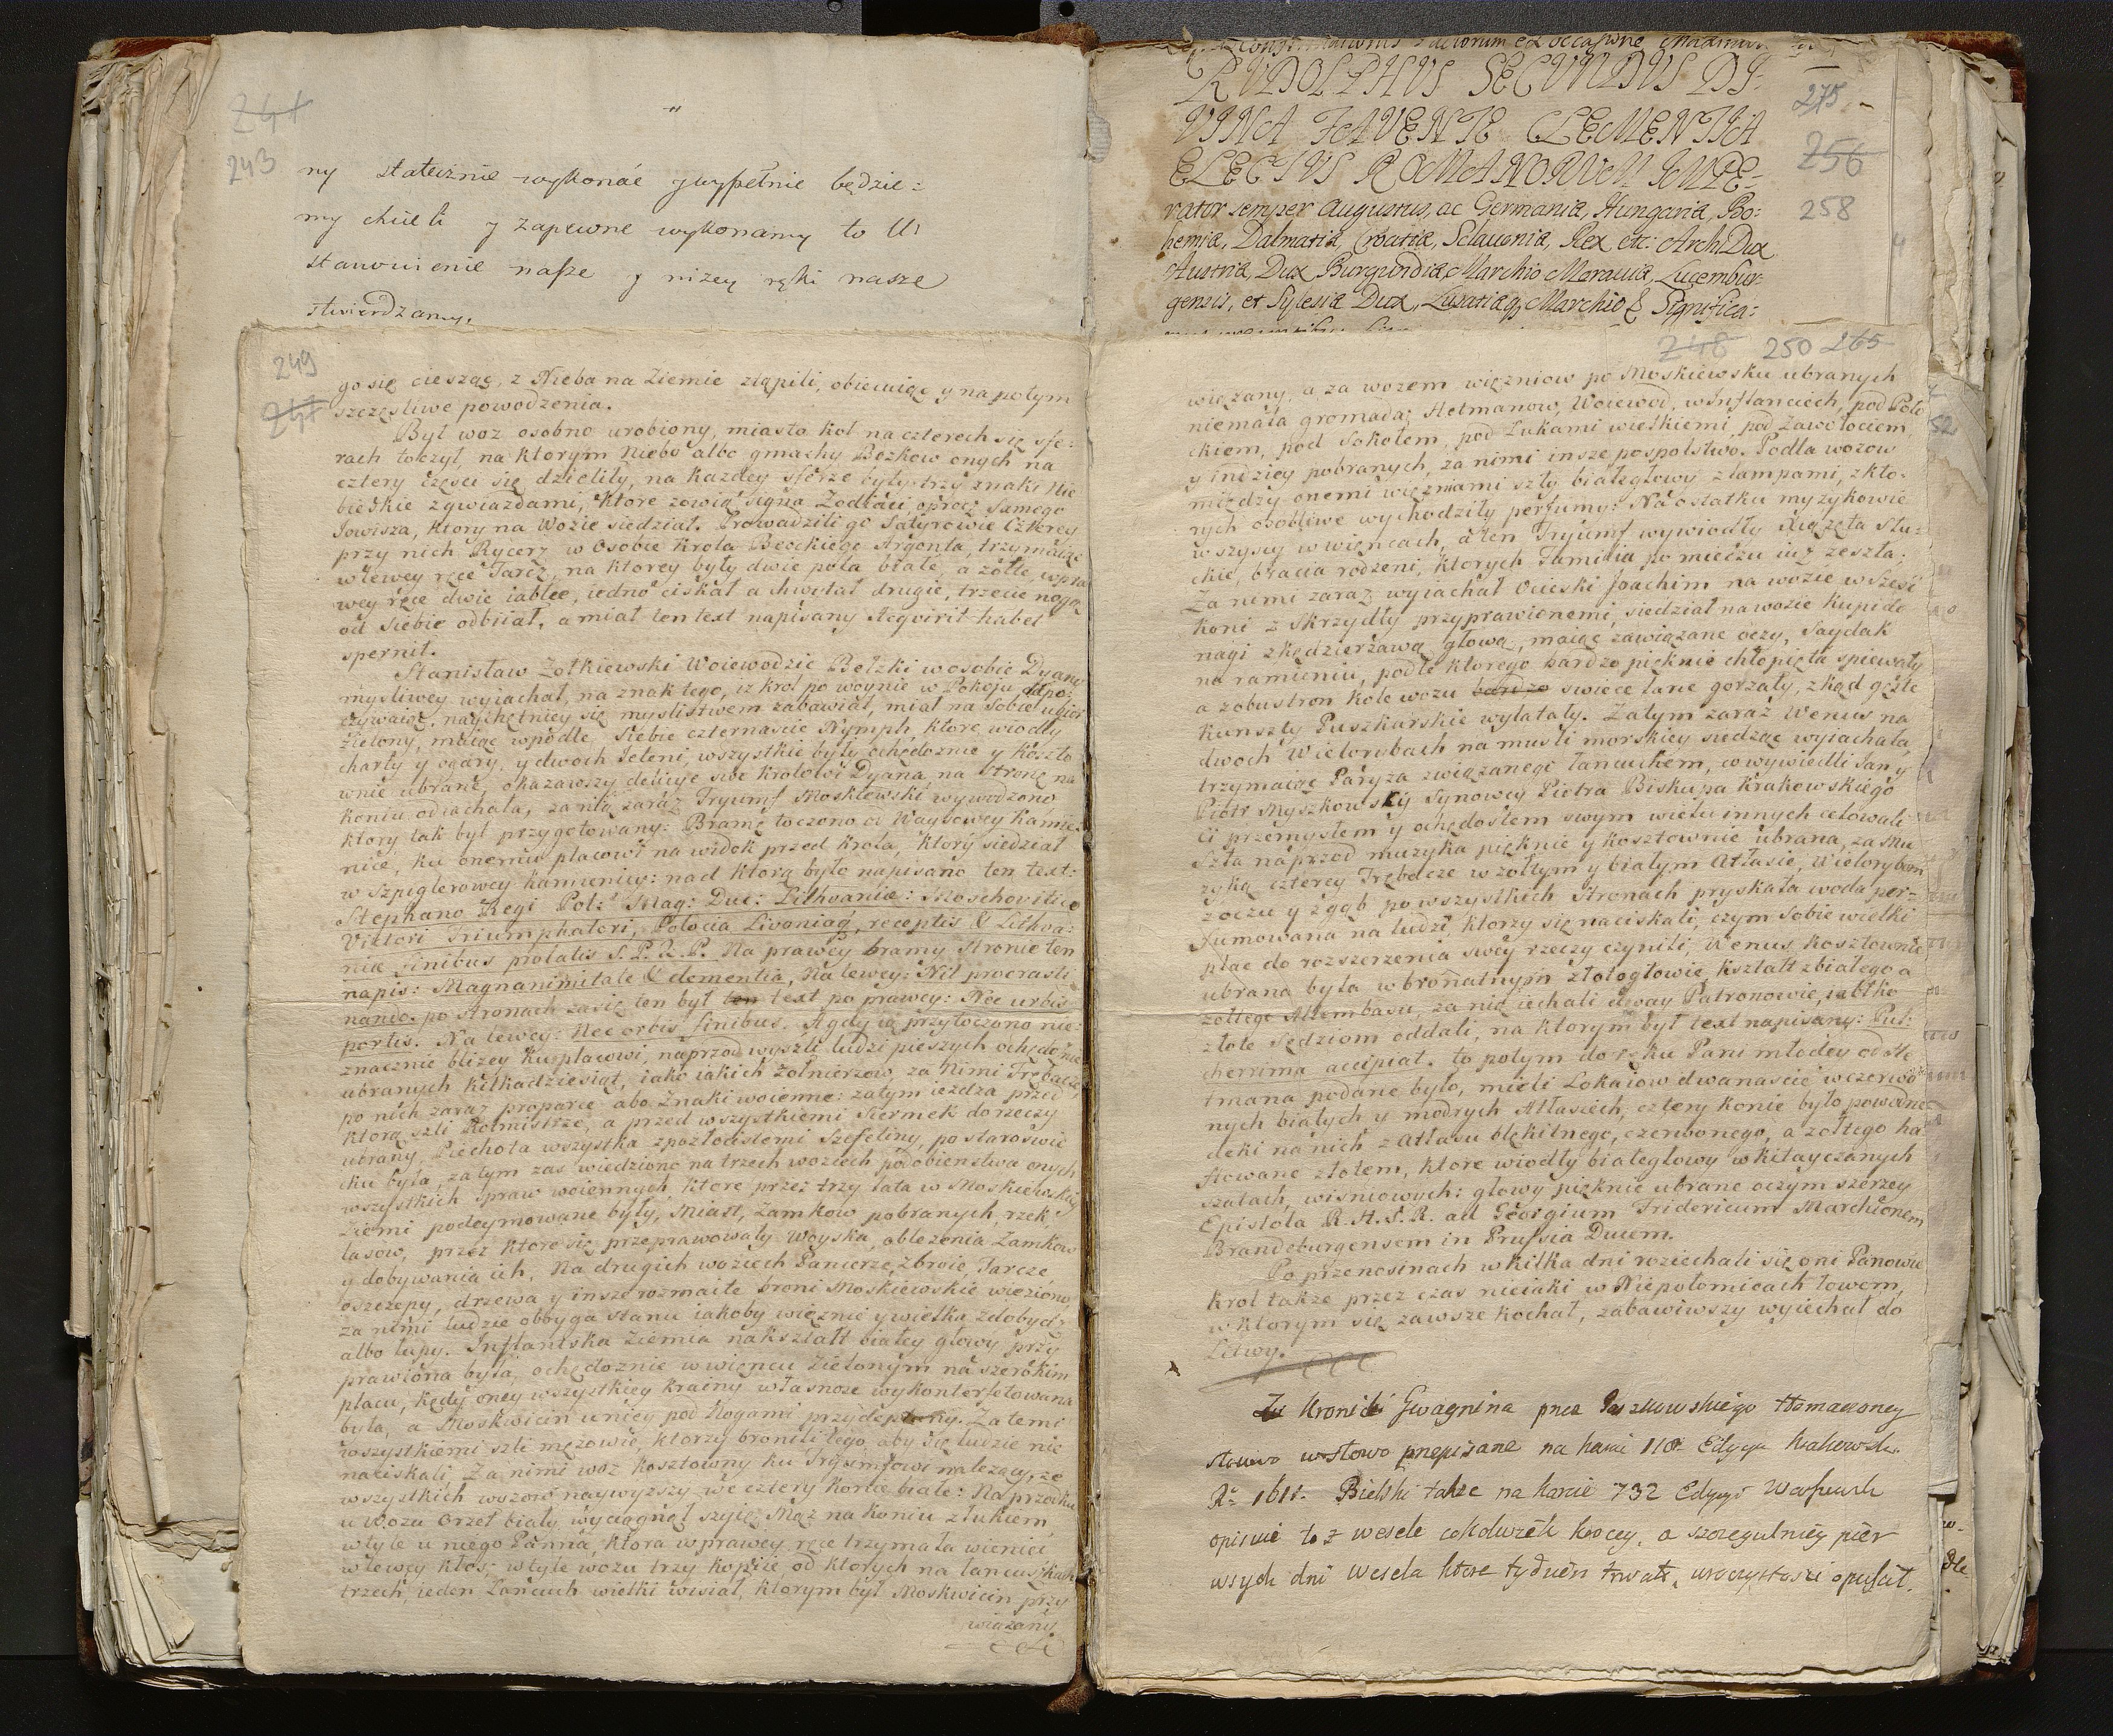 241
243
ny statecznie wykonać y wypełnie będzie=
my chcieli y zapewne wykonamy to U
stanowienie nasze y niżey ręki nasze
stwierdzamy.
249
241
go się ciesząc, z Nieba na Ziemie ztąpili, obiecuiąc y na potym
szczęsliwe powodzenia.
Był woz osobno urobiony, miasto koł na czterech się sfe=
rach toczył, na ktorym Niebo albo gmachy Bożkow onych na
cztery części się dzieliły, na każdey sferze były trzy znaki Nie
bieskie z gwiazdami, ktore zowią signa Zodiaci, oprocz samego
Jowisza, ktory na Wozie siedział. Prowadzili go Satyrowie czterey
przy nich Rycerz w Osobie Krola Beockiego Argonta, trzymaiąc
w lewey ręce Tarcz, na ktorey były dwie pola białe, a żołte, w pra
wey ręce dwie iabłce, iedno ciskał a chwytał drugie, trzecie nogą
od siebie odbiiał, a miał ten text napisany Reqvirit habet
spernit.
Stanisław Zołkiewski Woiewodzic Bełzki w osobie Dyany
mysliwey wyiachał, na znak tego, iż krol po woynie w Pokoju odpo=
czywaiąc, naychętniey się myslistwem zabawiał, miał na sobie ubior
zielony, maiąc wpodle siebie czternascie Nymph, ktore wiodły
charty y ogary, y dwoch Jeleni, wszystkie były ochędożnie y koszto
wnie ubrane, okazawszy delicye swe krolowi Dyana, na stronę na
koniu odiachała, za nią zaraz Tryumf Moskiewski wywodzono
ktory tak był przygotowany: Bramę toczono od Waysowey Kamie=
nice, ku onemu placowi na widok przed krola, ktory siedział
w Szpiglerowey kamienicy: nad ktorą było napisano ten text:
Stephano Regi Pol: Mag: Duc: Lithvaniæ: Moschovitico
Viktori Triumphatori, Polocia Livoniaq, receptis & Lithva=
niæ finibus prolatis S. P. Q. P. Na prawey bramy stronie ten
napis: Magnanimitate & clementia, Na lewey: Nil procrasti
nando. po stronach zasię ten był ten text, po prawey: Nec urbis
portis. Na lewey: Nec orbis finibus. A gdy ią przytoczono nie=
znacznie bliżey ku placowi, naprzod wyszli ludzi pieszych ochędożnie
ubranych kilkadziesiąt, iako iakich żołnierzow, za nimi Trębacze,
po nich zaraz proporce abo Znaki woienne: zatym iezdza przed
ktorą szli Rotmistrze, a przed wszystkiemi Siermek do rzeczy
ubrany, Piechota wszystka z pozłocistemi Szefeliny, po staroświe
cku była, za tym zas wiedziono na trzech woziech podobienstwa onych
wszystkich spraw woiennych, ktore przez trzy lata w Moskiewskiy
Ziemi podeymowane były, Miast, Zamkow pobranych, rzek,
lasow, przez ktore się przeprawowały Woyska, oblezenia Zamkow
y dobywania ich. Na drugich woziech Pancerze, zbroie, Tarcze
oszczepy, drzewa y insze rozmaite broni Moskiewskie wieziono,
za nimi ludzie obbyga stanu iakoby więznie y wielka zdobycz
albo łupy. Inflantska Ziemia nakształt białey głowy przy
prawiona była, ochędożnie w wiencu Zielonym na szerokim
placu, kędy oney wszystkiey krainy własnosc wykonterfetowana
była, a Moskwicin u niey pod Nogami przydeptany. Za temi
wszystkiemi szli mężowie, ktorzy bronili tego, aby się ludzie nie
naciskali. Za nimi woz kosztowny ku Tryumfowi nalezący, ze
wszystkich wozow naywyższy we cztery konie białe: Na przodku
u Wozu Orzeł biały wyciągnął szyię, Mąż na koniu z łukiem,
w tyle u niego Panna, ktora w prawey ręce trzymała wieniec
w lewey kłos, w tyle wozu trzy kopiie, od ktorych na łancuszkach
trzech, ieden Łancuch wielki wisiał, ktorym był Moskwicin przy
wiązany.
RUDOLPHUS SECUNDUS DI=
VINA FAVENTE CLEMENTIA
ELECTUS ROMANORUM IMPE=
rator semper Augustus, ac Germaniæ, Hungariæ, Bo=
hemiæ, Dalmatiæ, Croatiæ, Sclavoniæ, Rex etc: ArchiDux
Austriæ, Dux Burgundiæ, Marchio Moraviæ, Lucembur=
gensis, et Sylesiæ Dux, Lusatiæq, Marchio & Significa=
275
256
258
248 250 265
wiązany, a za wozem więzniow po Moskiewsku ubranych
niemała gromada; Hetmanow, Woiewod, w Inflanciech, pod Poło
ckiem, pod Sokołem, pod Łukami wielkiemi, pod Zawołociem
y indziey pobranych, za nimi insze pospolstwo. Podla wozow
między onemi więzniami szły białegłowy z lampami, z kto=
rych osobliwe wychodziły perfumy: Na ostatku muzykowie
wszyscy w wiencach, a ten Tryumf wywiodły Xiążęta Słu=
ckie, bracia rodzeni, ktorych Familia po mieczu iuż zeszła.
Za nimi zaraz wyiachał Ocieski Joachim na wozie w sześć
koni z skrzydły przyprawionemi, siedział na wozie Kupido
nagi z kędzierzawą głową, maiąc zawiązane oczy, Saydak
na ramieniu, podle ktorego bardzo pięknie chłopięta spiewały
a z obu stron kole wozu bardzo swiece lane gorzały, z kąd gęste
kunszty Puszkarskie wylatały. Zatym zaraz Wenus na
dwoch Wielorybach na muszli morskiey siedząc wyiachała,
trzymaiąc Paryza związanego łancuchem, co wywiedli Jan y
Piotr Myszkowsky Synowcy Piotra Biskupa Krakowskiego
Ci przemysłem y ochędostem swym wielu innych celowali
Szła naprzod muzyka pięknie y kosztownie ubrana, za mu
zyką czterey Trębacze w żołtym y białym Atłasie, Wielorybom
z oczu y z gąb po wszystkich stronach pryskała woda per=
fumowana na ludzi, ktorzy się naciskali, czym sobie wielki
plac do rozszerzenia swey rzeczy czynili, Wenus kosztownie
ubrana była w bronatnym złotogłowie, kształt z białego a
żołtego Altembasu, za nią iechali dway Patronowie, iabłko
złote sędziom oddali, na ktorym był text napisany: Pul=
cherrima accipiat. to potym do ręku Pani młodey od He
tmana podane było, mieli Lokaiow dwanascie w czerwo
nych białych y modrych Atłasiech, cztery konie było powodne
deki na nich z Atłasu błękitnego, czerwonego, a żołtego ha
ftowane złotem, ktore wiodły białegłowy w kitayczanych
szatach, wisniowych: głowy pięknie ubrane oczym szerzey
Epistola R. H. S. R. ad Georgium Fridericum Marchionem
Brandeburgensem in Prussia Ducem.
Po przenosinach w kilka dni roziechali się oni Panowie
krol także przez czas nieiaki w Niepołomicach łowem,
w ktorym się zawsze kochał, zabawiwszy wyiechał do
Litwy.
Z Kroniki Gwagnina przez Paszkowskiego tłomaczoney
słowo w słowo przepisane na karcie 110 Edycyi Krakowsk.
Rº 1611. Bielski także na karcie 732 Edycyi Warszawsk
opisuie toż wesele cokolwiek krocey, a szczegulniey pier
wszych dni wesela ktore tydzień trwało, uroczystosci opuscił.